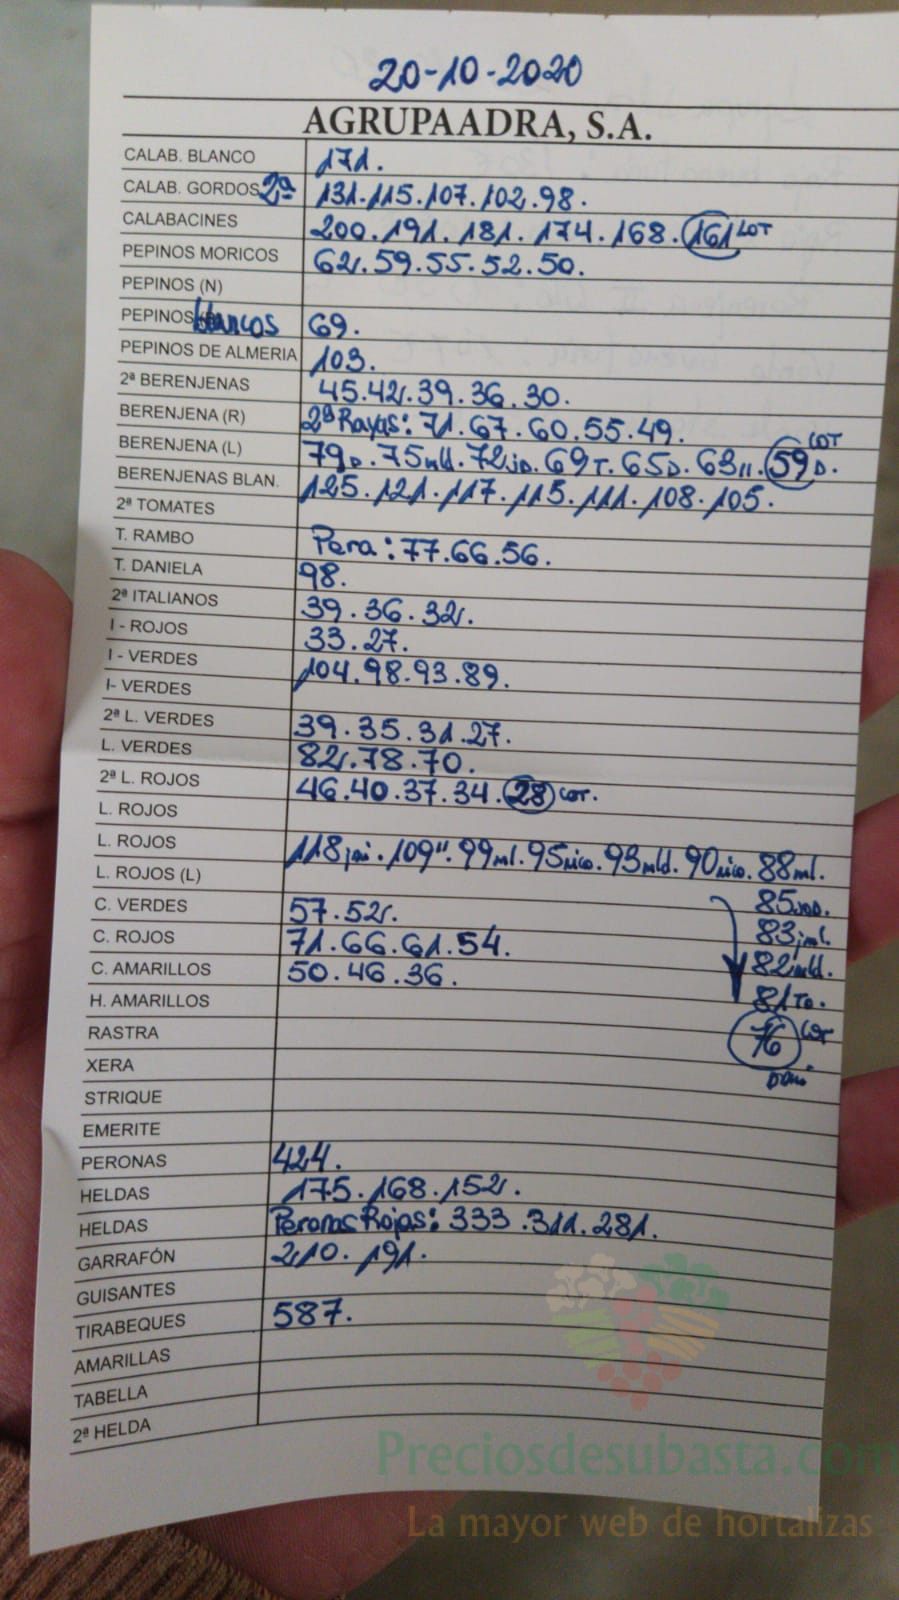 20-10-2020
AGRUPAADRA, S.A.
CALAB. BLANCO 171.
CALAB. GORDOS 2ª 131.115.107.102.98.
CALABACINES 200.191.181.174.168.161 COT
PEPINOS MORICOS 62.59.55.52.50.
PEPINOS (N)
PEPINOS blancos 69.
PEPINOS DE ALMERIA 103.
2ª BERENJENAS 45.42.39.36.30.
BERENJENA (R) 2ª Rayas: 71.67.60.55.49.
BERENJENA (L) 79D.75mld.72jD.69T.65D.63".59D. COT
BERENJENAS BLAN. 125.121.117.115.111.108.105.
2ª TOMATES
T. RAMBO Pera: 77.66.56.
T. DANIELA 98.
2ª ITALIANOS 39.36.32.
I - ROJOS 33.27.
I - VERDES 104.98.93.89.
I- VERDES
2ª L. VERDES 39.35.31.27.
L. VERDES 82.78.70.
2ª L. ROJOS 46.40.37.34.28 COT.
L. ROJOS
L. ROJOS 118.109".99ml.95nico.93mld.90nico.88ml.
L. ROJOS (L) 85
C. VERDES 57.52. 83jml.
C. ROJOS 71.66.61.54. 82mld.
C. AMARILLOS 50.46.36. 81To.
H. AMARILLOS 76 COT
RASTRA
XERA
STRIQUE
EMERITE
PERONAS 424.
HELDAS 175.168.152.
HELDAS Peronas Rojas: 333.311.281.
GARRAFÓN 210.191.
GUISANTES
TIRABEQUES 587.
AMARILLAS
TABELLA
2ª HELDA
Preciosdesubasta.com
La mayor web de hortalizas